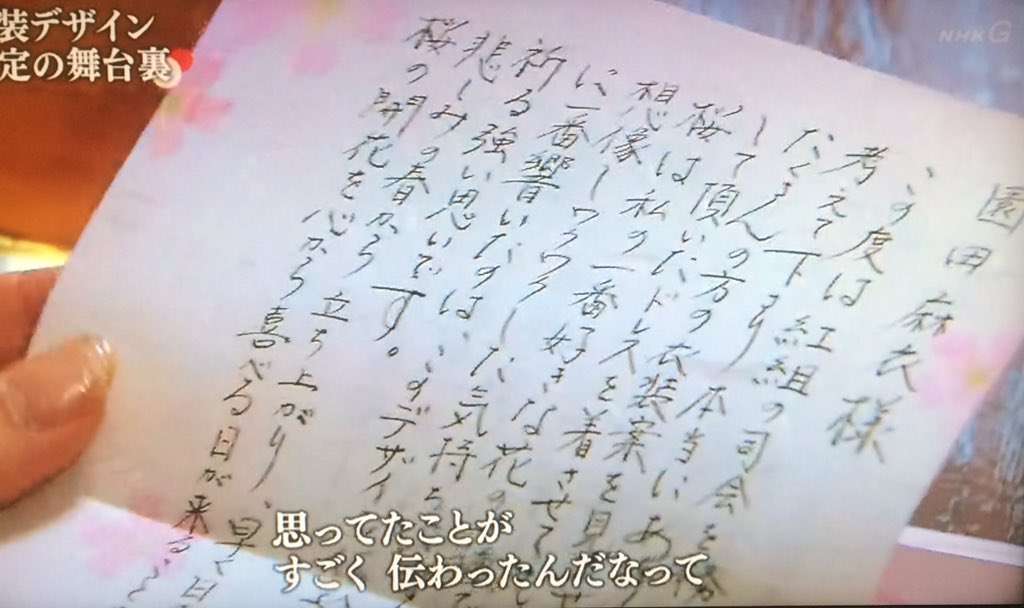 装デザイン
定の舞台裏
NHK G
園田麻衣様
この度は 紅組の司会を
考えて下さり 本当にあ
たくさんの方の衣装案を見
して頂いたドレスを着させて
桜は私の一番好きな花の
想像しワクワクした気持ち
に一番響いたのは、このデザイ
祈る強い思いです。
悲しみの春から 立ち上がり、早く
桜の開花を心から喜べる日が来る
思ってたことが
すごく 伝わったんだなって